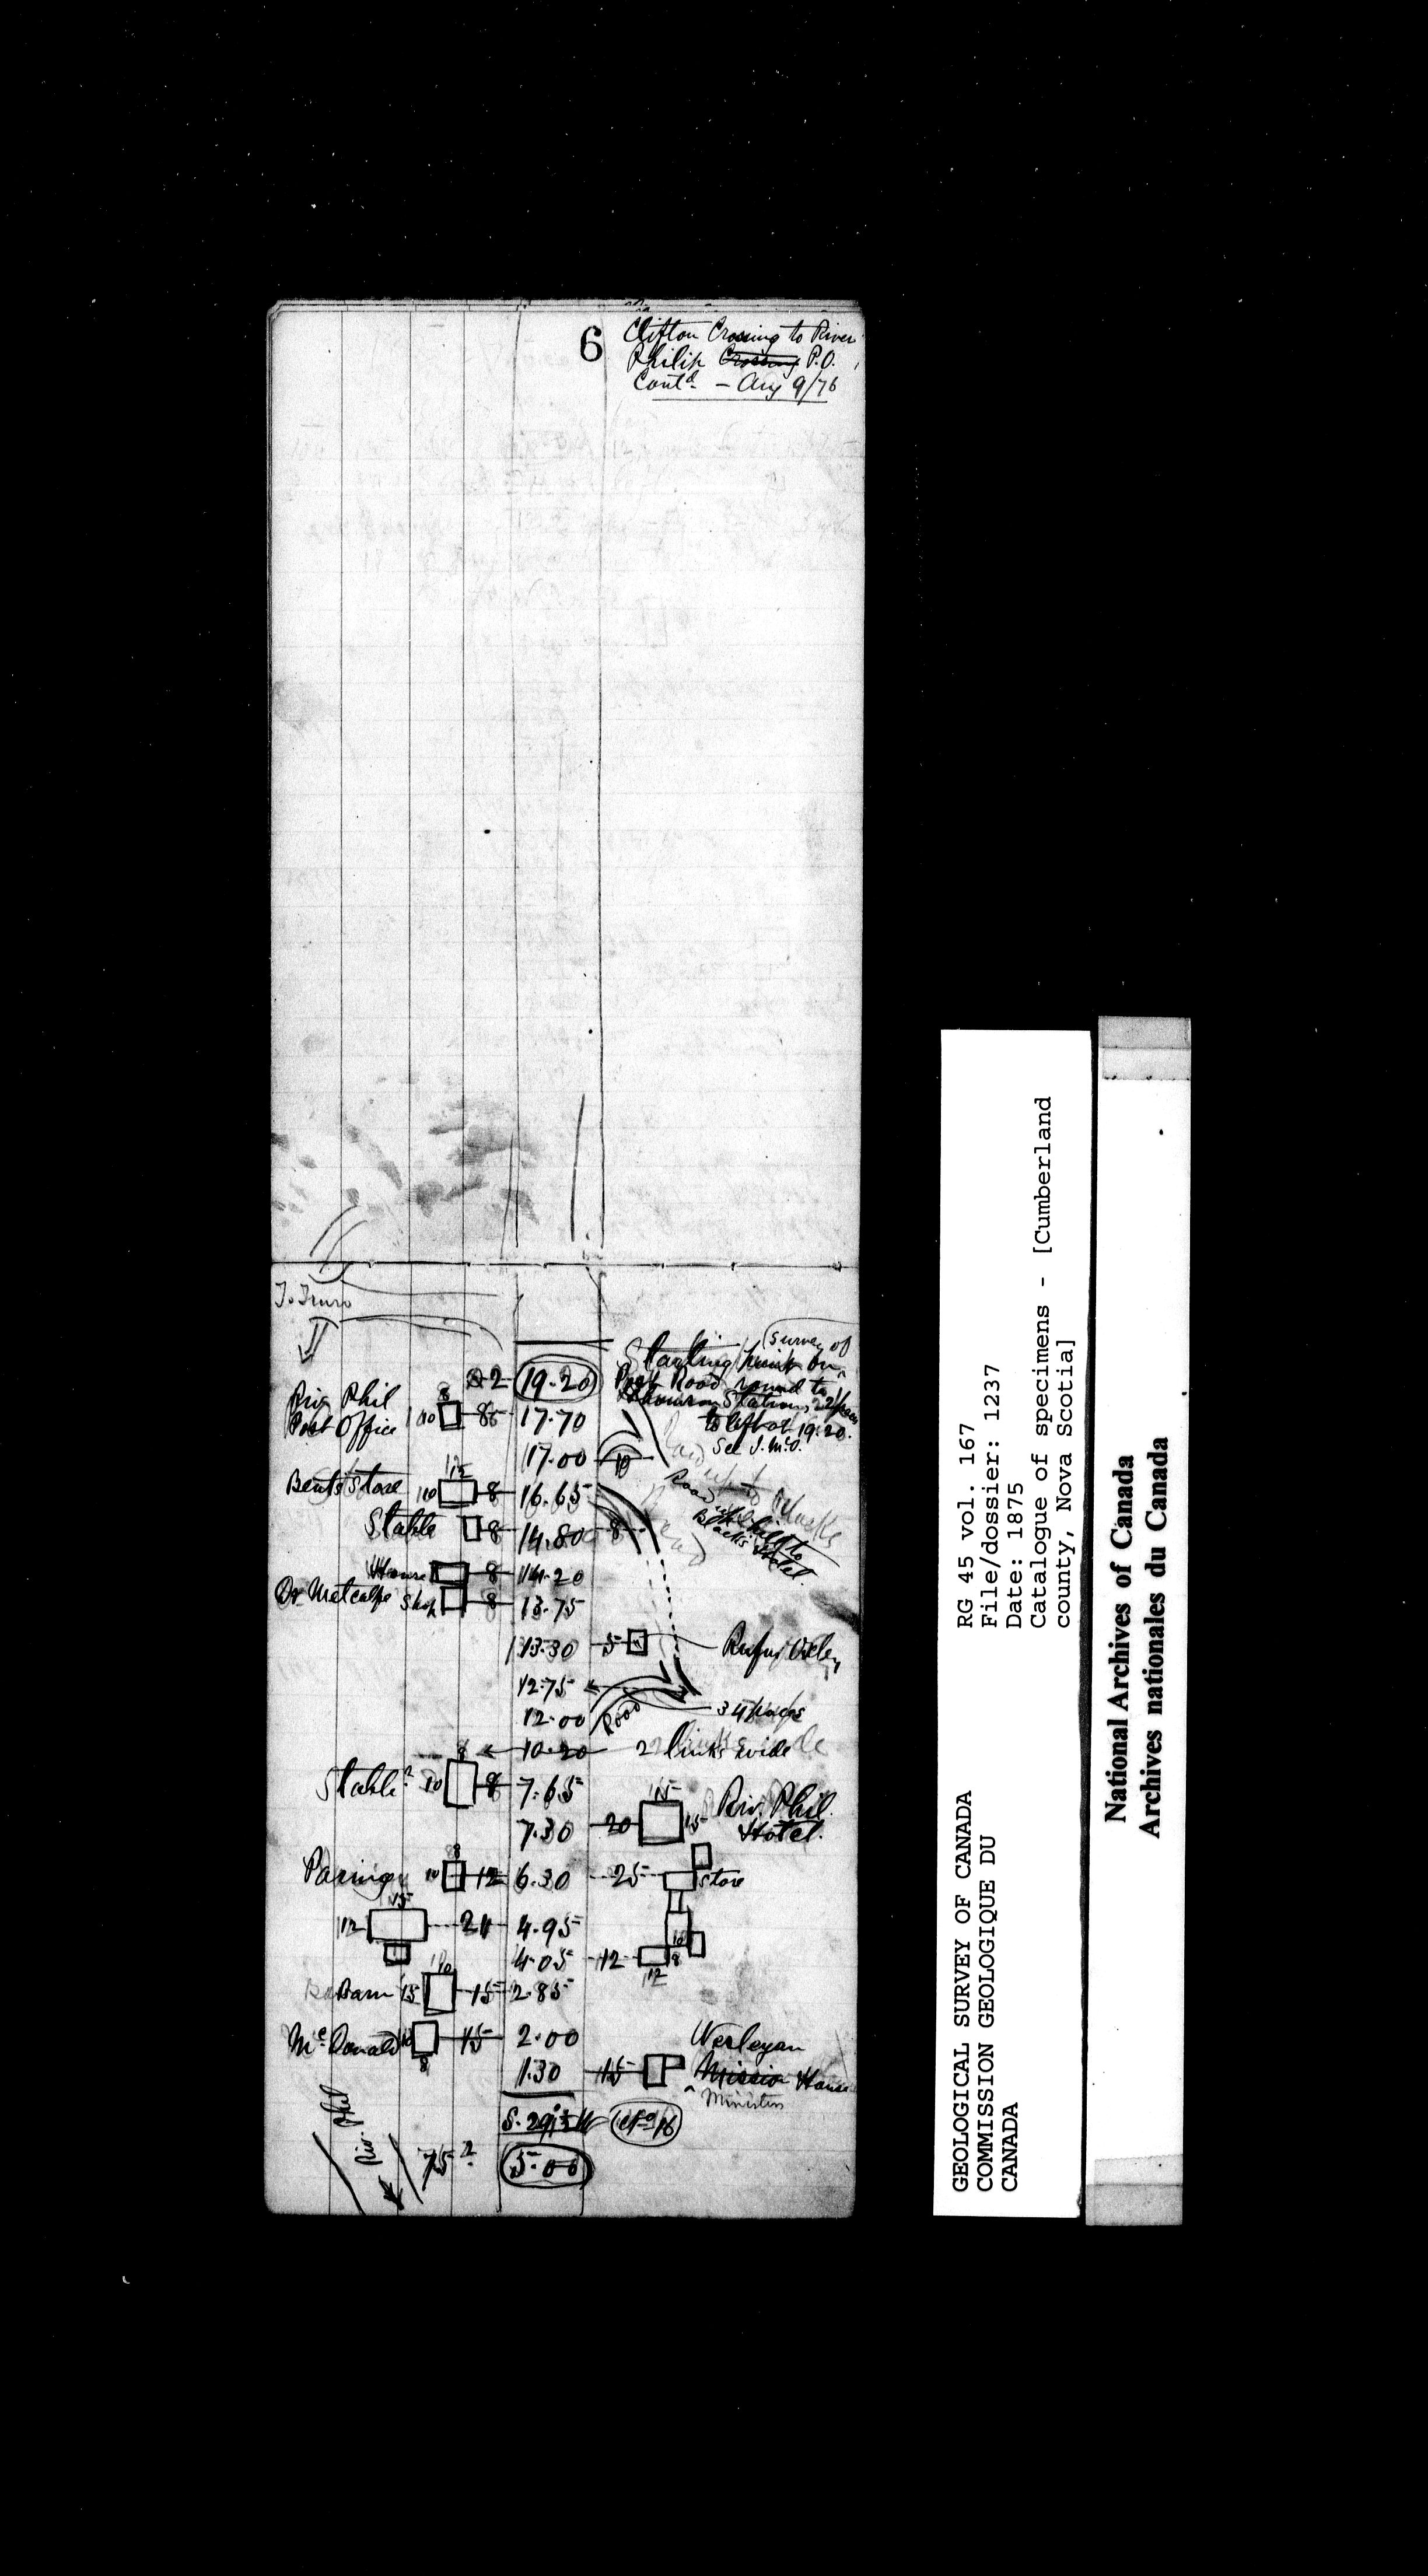 6
Clifton Crossing to River
Philip Crossing P.O.
Contd - Aug 9/76
To Truro
(Survey of
Starting point on
Post Road round to
Thomson Station, 22 paces
to left of 19.20.
See J. McO.
2 19.20
Riv Phil
Post Office 10 8 8 17.70
17.00 10
Road up hill to
Black's Hotel.
Bents Store 10 15 8 16.65
Stable 8 14.80 8
House 8 14.20
Dr Metcalfe Shop 8 13.75
13.30 5 Rufus
12.75
12.00 Road 34 paces
10.20 2 links wide
Stable? 10 8 8 7.65
7.30 20 15 15 Riv. Phil.
Hotel.
10 8 12 6.30 25 Store
12 15 21 4.95
4.05 12 12 10 8
Barn 15 10 15 2.85
McDonald 10 8 15 2.00
Wesleyan
1.30 15 Mission House
^ Ministers
Riv. Phil
75? 5.00
RG 45 vol. 167
File/dossier: 1237
Date: 1875
Catalogue of specimens - [Cumberland
county, Nova Scotia]
GEOLOGICAL SURVEY OF CANADA
COMMISSION GEOLOGIQUE DU
CANADA
National Archives of Canada
Archives nationales du Canada